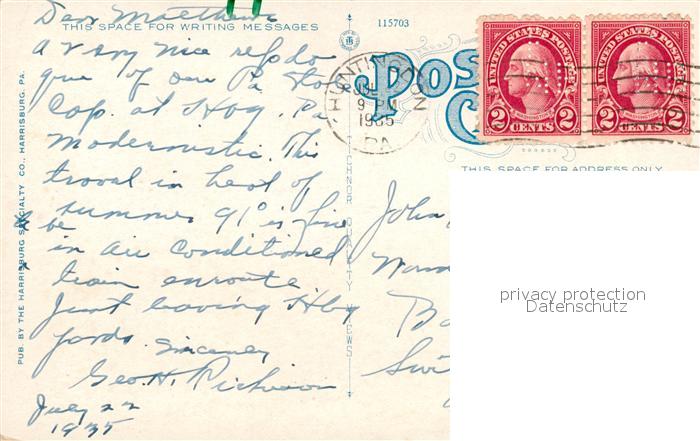 Dear Matthews
THIS SPACE FOR WRITING MESSAGES
A very nice
of our Pa
Cap. at Hbg. Pa
Modernistic. This
travel in heat of
summer 91° is fine
be
in air conditioned
train enroute
Just leaving Hbg
yards. Sincerely
Geo. H.
July 22
1935
PUB. BY THE HARRISBURG SPECIALTY CO., HARRISBURG, PA.
115703
POS
C
HUNTINGDON
9 PM
1935
PA
UNITED STATES POSTAGE
2 CENTS 2
UNITED STATES POSTAGE
2 CENTS 2
THIS SPACE FOR ADDRESS ONLY
TICHNOR QUALITY VIEWS
John
privacy protection
Datenschutz